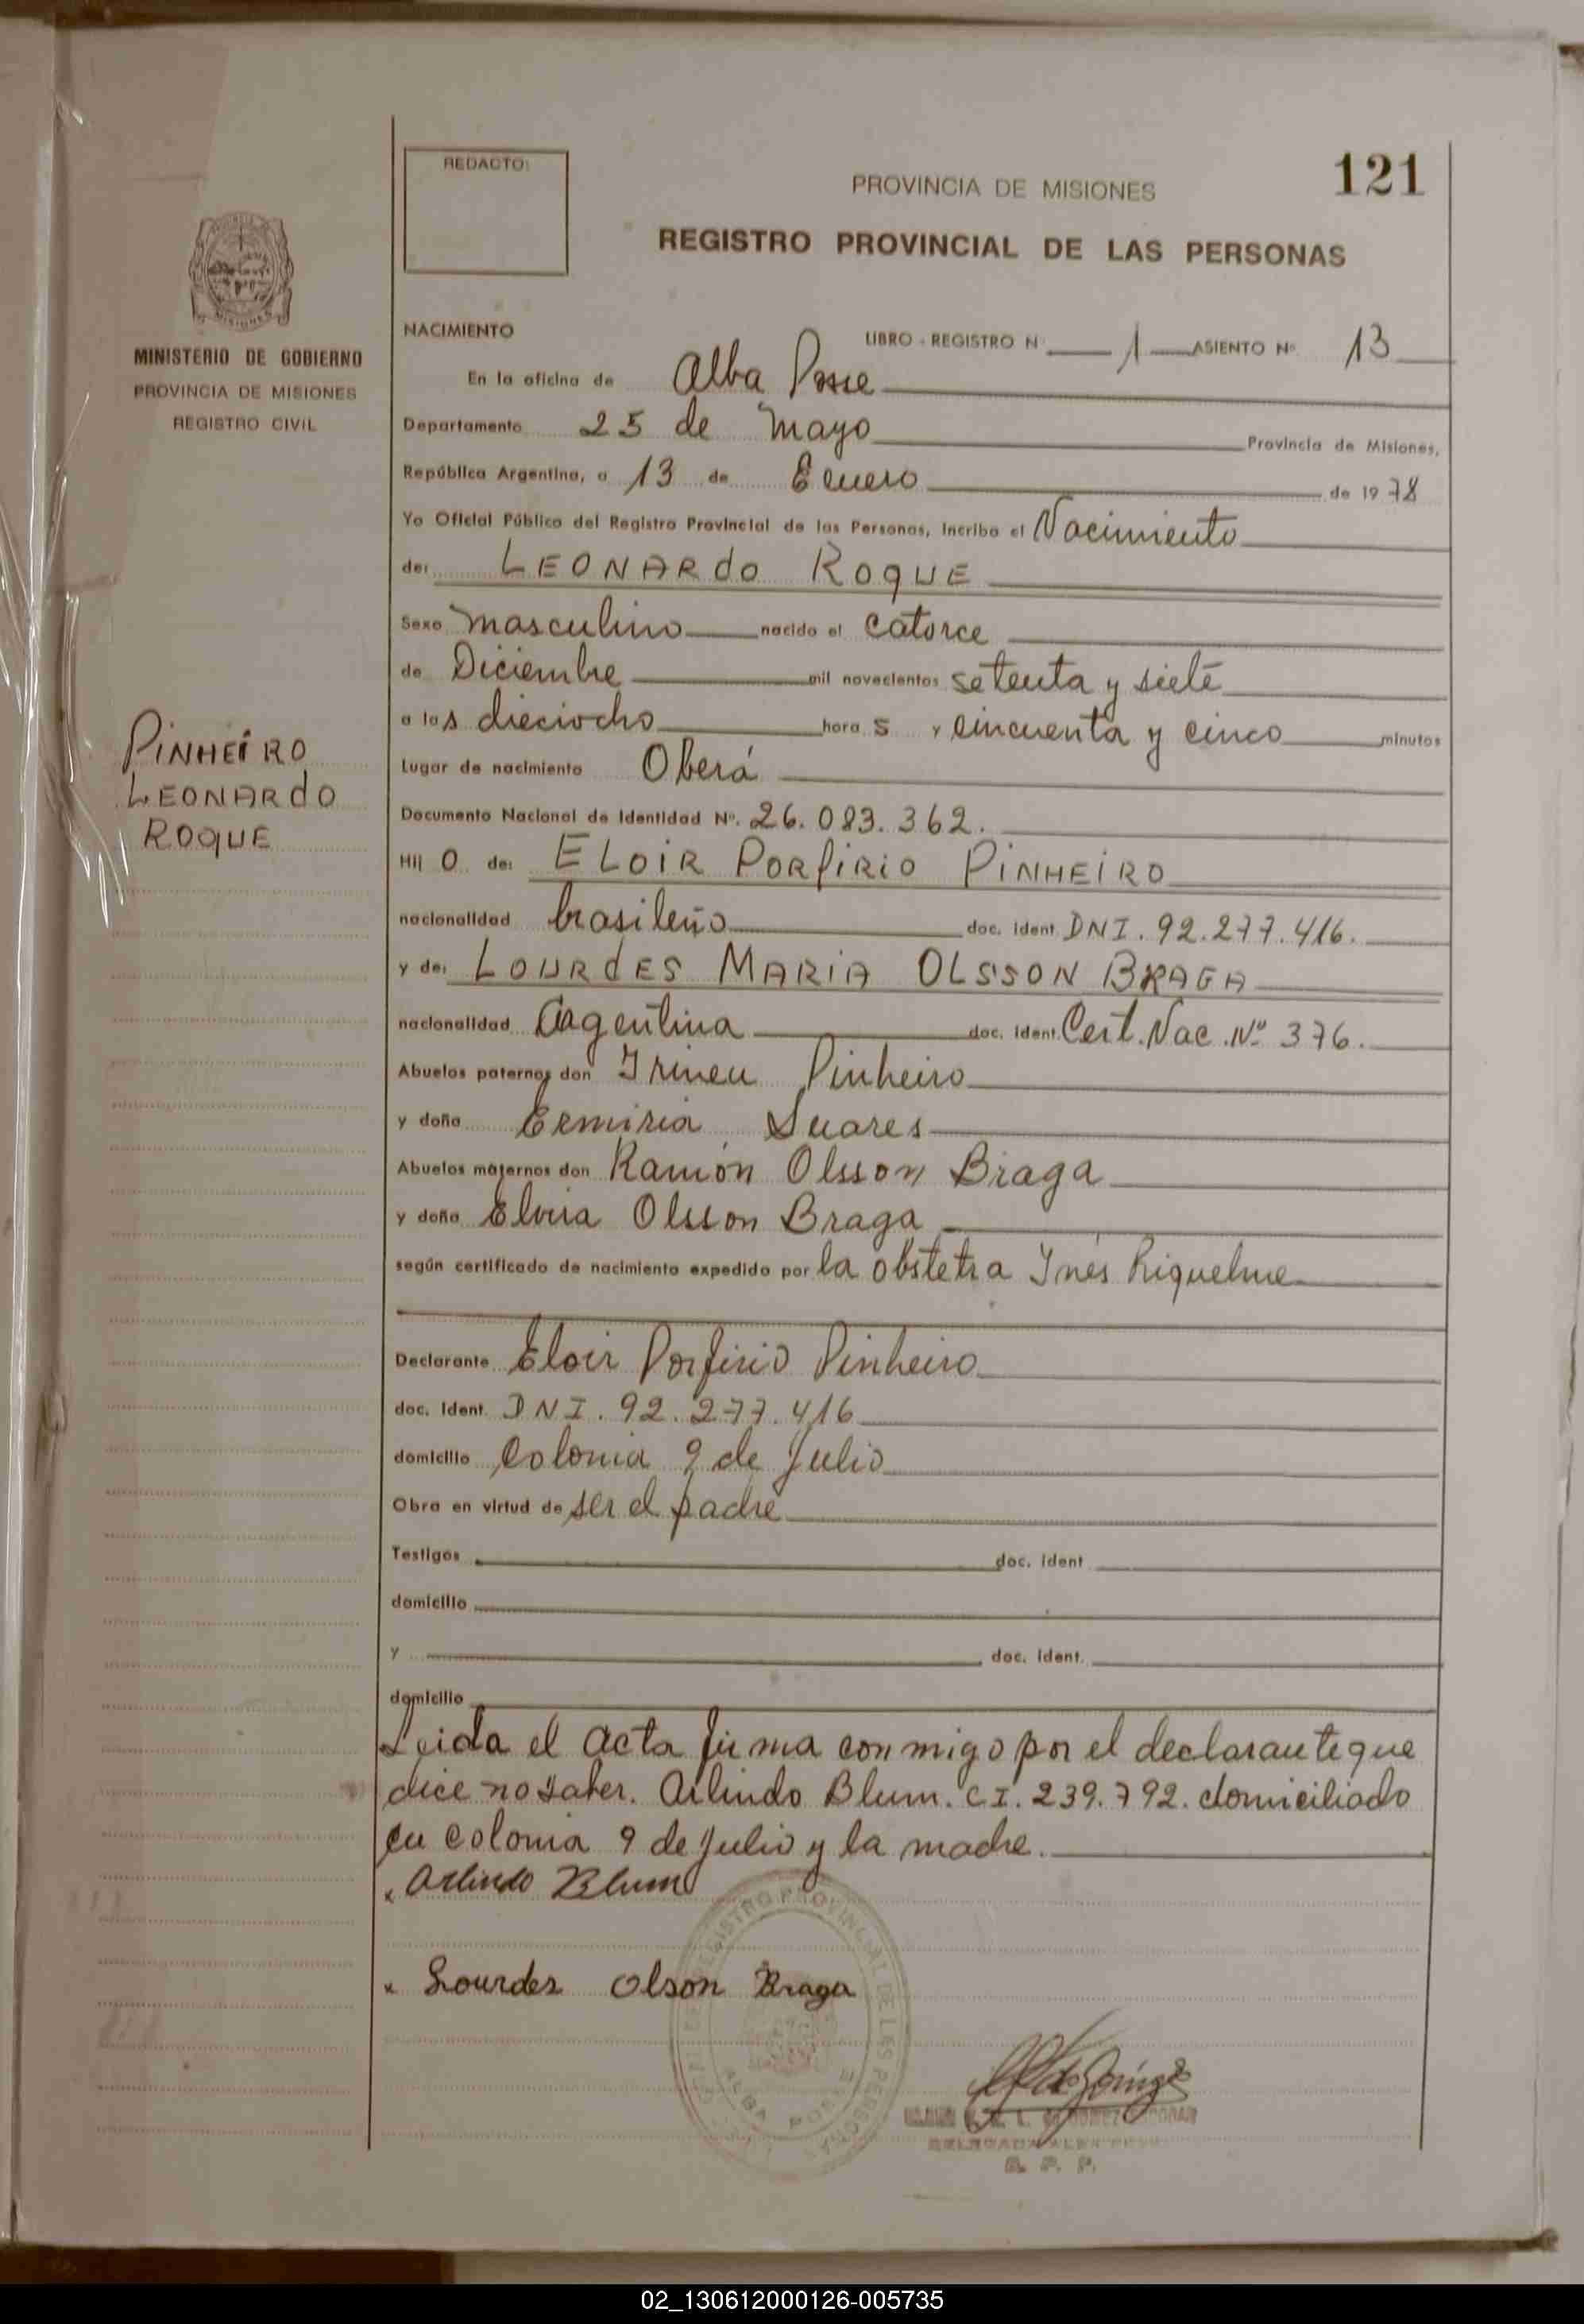 REDACTO:
PROVINCIA DE MISIONES
121
REGISTRO PROVINCIAL DE LAS PERSONAS
MINISTERIO DE GOBIERNO
PROVINCIA DE MISIONES
REGISTRO CIVIL
NACIMIENTO
LIBRO - REGISTRO N 1 ASIENTO Nº 13
En la oficina de Alba Posse
Departamento 25 de Mayo Provincia de Misiones,
República Argentina, a 13 de Enero de 1978
Yo Oficial Público del Registro Provincial de las Personas, incribo el Nacimiento
de: LEONARdo ROQUE
Sexo masculino nacido el catorce
de Diciembre mil novecientos setenta y siete
a las dieciocho hora s y cincuenta y cinco minutos
Lugar de nacimiento Oberá
Documento Nacional de Identidad Nº. 26.083.362.
Hij o de: ELOiR PORfiRiO PiNHEiRO
nacionalidad brasileño doc. ident. DNI. 92.277.416.
y de: LOURdES MARiA OLSSON BRAGA
nacionalidad Argentina doc. ident. Cert. Nac. Nº 376.
Abuelos paternos don Irineu Pinheiro
y doña Ermiria Suares
Abuelos maternos don Ramón Olsson Braga
y doña Elvira Olsson Braga
según certificado de nacimiento expedido por la obstetra Inés Riquelme
Declarante Eloir Porfirio Pinheiro
doc. Ident. DNI. 92.277.416
domicilio Colonia 9 de Julio
Obra en virtud de ser el padre
Testigos doc. ident
domicilio
y doc. ident.
domicilio
Leida el acta firma conmigo por el declarante que
dice no saber. Arlindo Blum. C.I. 239.792. domiciliado
en colonia 9 de Julio y la madre.
x Arlindo Blum
x Lourdes Olson Braga
PiNHEiRO
LEONARdo
ROQUE
REGISTRO PROVINCIAL DE LAS PERSONAS
ALBA POSSE
DELEGADA ALBA POSSE
R. P. P.
02_130612000126-005735